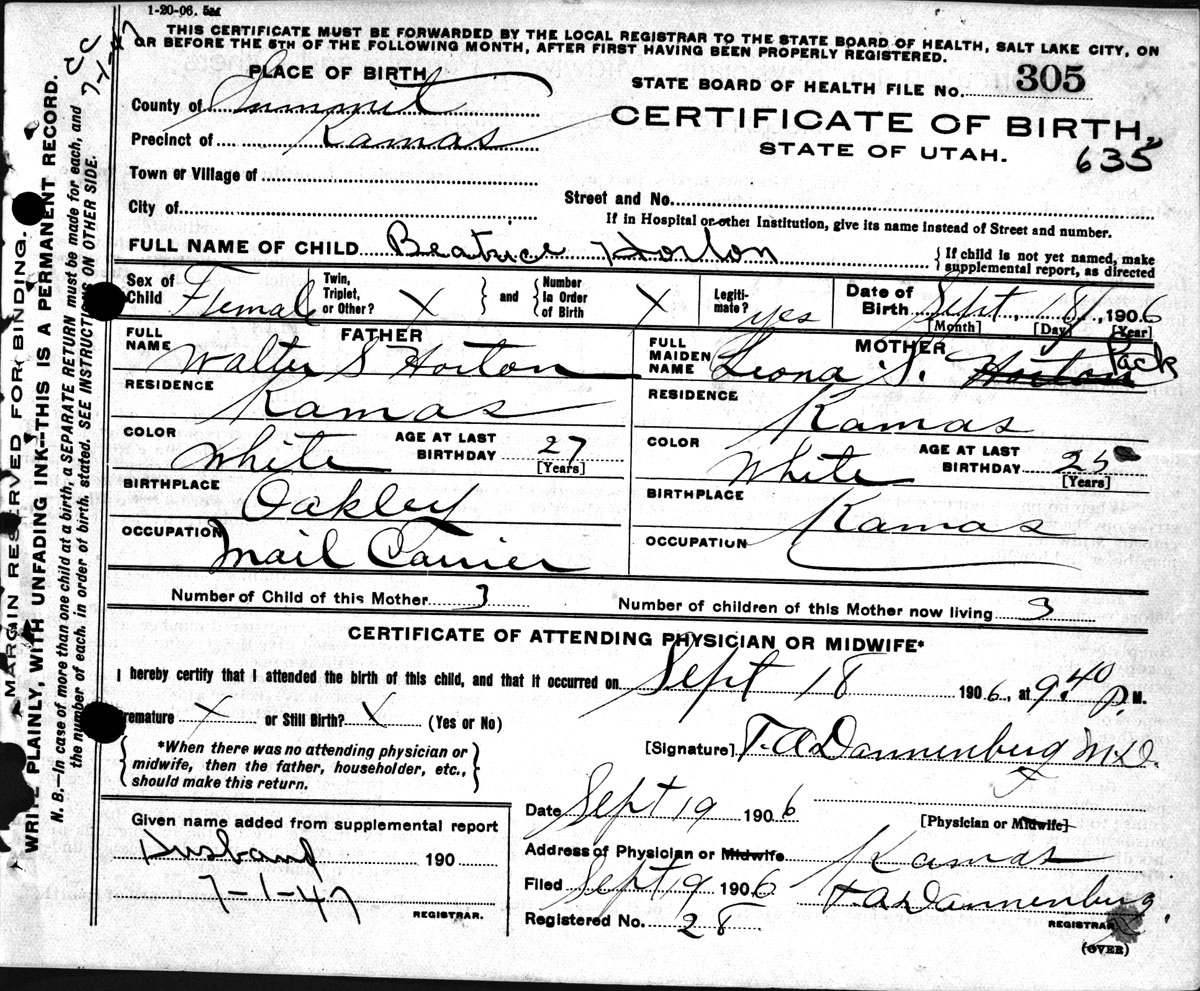 1-20-06. 5M
THIS CERTIFICATE MUST BE FORWARDED BY THE LOCAL REGISTRAR TO THE STATE BOARD OF HEALTH, SALT LAKE CITY, ON
OR BEFORE THE 5TH OF THE FOLLOWING MONTH, AFTER FIRST HAVING BEEN PROPERLY REGISTERED.
PLACE OF BIRTH
County of Summit
Precinct of Kamas
Town or Village of
City of
STATE BOARD OF HEALTH FILE No. 305
CERTIFICATE OF BIRTH,
STATE OF UTAH.
635
Street and No.
If in Hospital or other Institution, give its name instead of Street and number.
FULL NAME OF CHILD Beatrice Horton
{ If child is not yet named, make
supplemental report, as directed
Sex of Child Female
Twin, Triplet, or Other? X } and { Number In Order of Birth X
Legitimate? yes
Date of Birth Sept. 18, 1906
[Month] [Day] [Year]
FATHER
FULL NAME Walter S Horton
RESIDENCE Kamas
COLOR White
AGE AT LAST BIRTHDAY 27
[Years]
BIRTHPLACE Oakley
OCCUPATION Mail Carrier
MOTHER
FULL MAIDEN NAME Leona S. Horton Pack
RESIDENCE Kamas
COLOR White
AGE AT LAST BIRTHDAY 25
[Years]
BIRTHPLACE Kamas
OCCUPATION
Number of Child of this Mother 3
Number of children of this Mother now living 3
CERTIFICATE OF ATTENDING PHYSICIAN OR MIDWIFE*
I hereby certify that I attended the birth of this child, and that it occurred on Sept 18 1906, at 9.40 P. M.
Premature X or Still Birth? X (Yes or No)
{ *When there was no attending physician or
midwife, then the father, householder, etc.,
should make this return. }
[Signature] T. A Dannenberg M.D.
[Physician or Midwife]
Date Sept 19 1906
Address of Physician or Midwife Kamas
Filed Sept 9 1906 T. A Dannenberg.
REGISTRAR
Registered No. 28
(OVER)
Given name added from supplemental report
Husband 190
7-1-47
REGISTRAR.
MARGIN RESERVED FOR BINDING.
WRITE PLAINLY, WITH UNFADING INK--THIS IS A PERMANENT RECORD.
N. B.—In case of more than one child at a birth, a SEPARATE RETURN must be made for each, and
the number of each, in order of birth, stated. SEE INSTRUCTIONS ON OTHER SIDE.